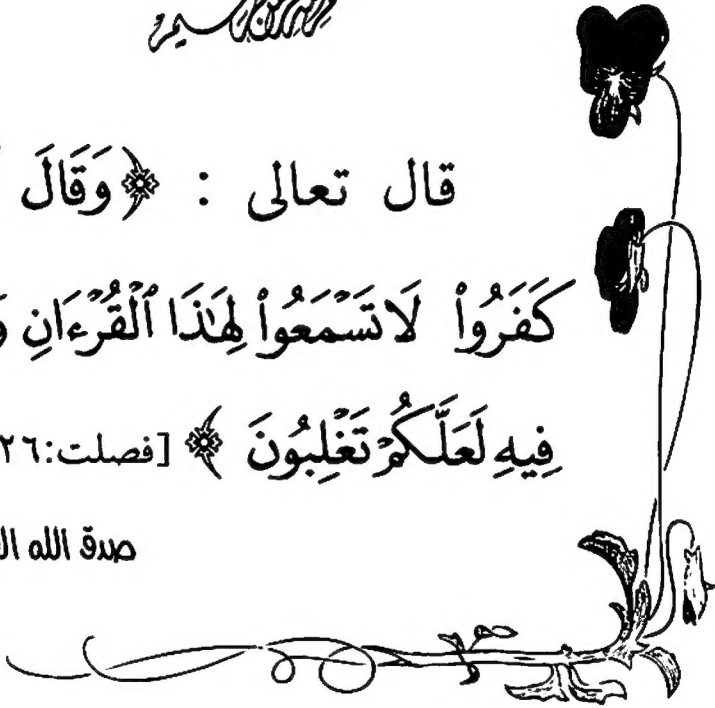 قال تعالى : ﴿وَقَالَ
كَفَرُوا۟ لَا تَسْمَعُوا۟ لِهَٰذَا ٱلْقُرْءَانِ
فِيهِ لَعَلَّكُمْ تَغْلِبُونَ ﴾ [فصلت:٢٦
صدق الله